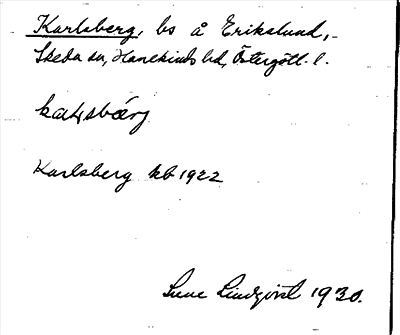 Karlsberg, bs å Erikslund,
Skeda sn, Hanekinds hd, Östergötl. l.
Karlsberg kb 1922
Sune Lindqvist 1930.